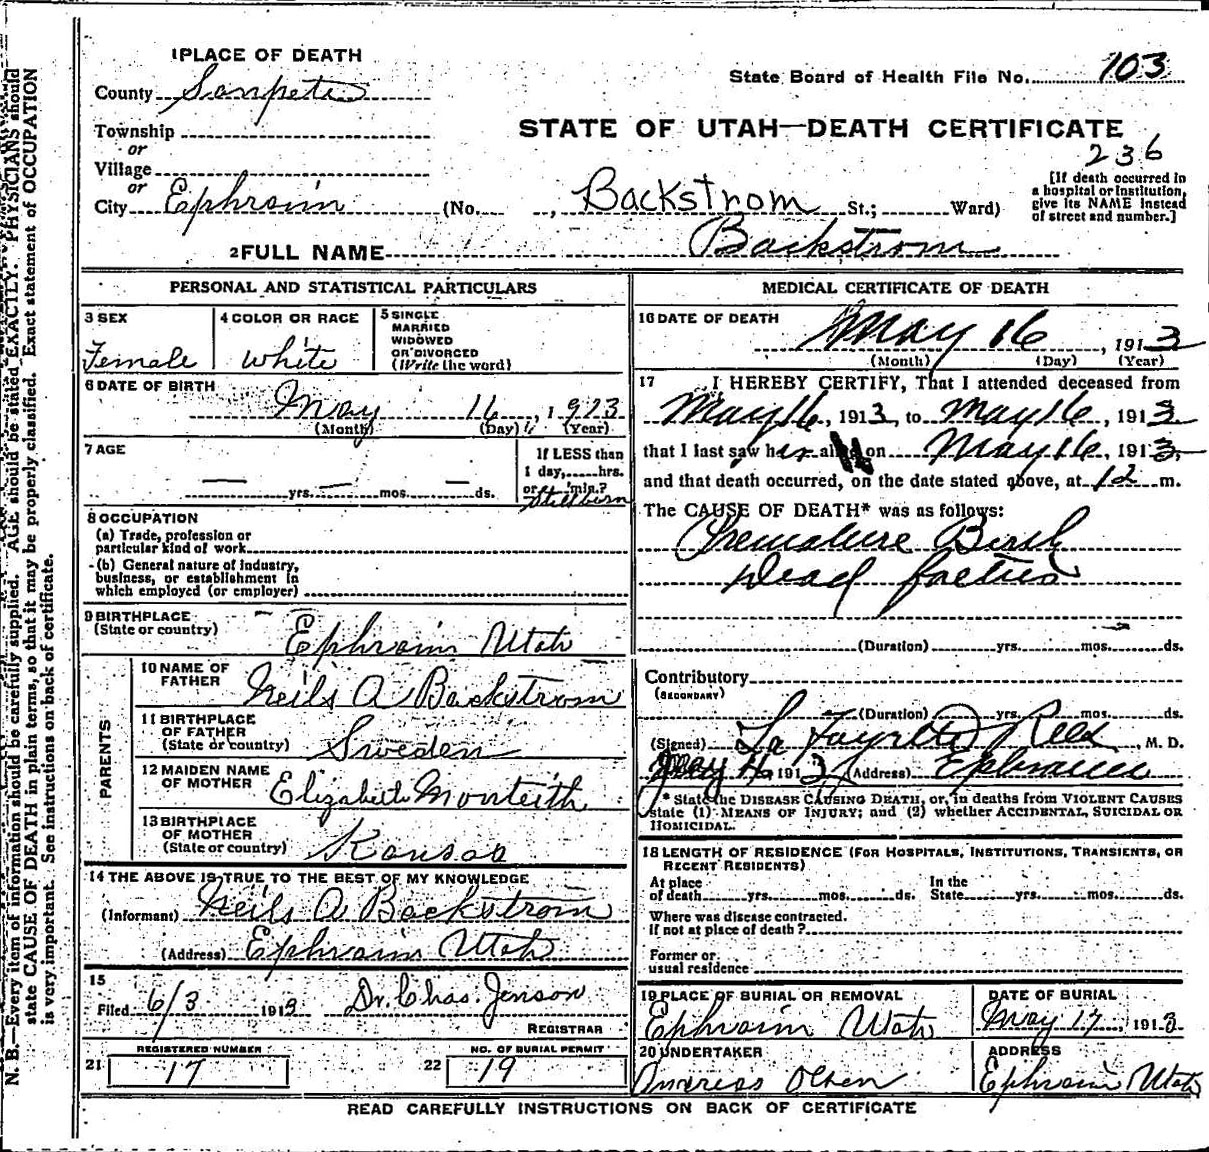 1 PLACE OF DEATH
County Sanpete
State Board of Health File No. 103
STATE OF UTAH—DEATH CERTIFICATE
236
Township
or
Village
or
City Ephraim (No. , Backstrom St.; Ward)
[If death occurred in
a hospital or institution,
give its NAME instead
of street and number.]
2 FULL NAME Backstrom
PERSONAL AND STATISTICAL PARTICULARS
3 SEX
Female
4 COLOR OR RACE
White
5 SINGLE
MARRIED
WIDOWED
OR DIVORCED
(Write the word)
6 DATE OF BIRTH
May 16, 1913
(Month) (Day) (Year)
7 AGE
— yrs. — mos. — ds.
If LESS than
1 day, hrs.
or min.?
Stillborn
8 OCCUPATION
(a) Trade, profession or
particular kind of work
(b) General nature of industry,
business, or establishment in
which employed (or employer)
9 BIRTHPLACE
(State or country)
Ephraim Utah
PARENTS
10 NAME OF
FATHER
Neils A Backstrom
11 BIRTHPLACE
OF FATHER
(State or country)
Sweden
12 MAIDEN NAME
OF MOTHER
Elizabeth Monteith
13 BIRTHPLACE
OF MOTHER
(State or country)
Kansas
14 THE ABOVE IS TRUE TO THE BEST OF MY KNOWLEDGE
(Informant) Neils A Backstrom
(Address) Ephraim Utah
15
Filed 6/3 1913 Dr. Chas. Jenson
REGISTRAR
REGISTERED NUMBER
21 17
NO. OF BURIAL PERMIT
22 19
MEDICAL CERTIFICATE OF DEATH
16 DATE OF DEATH
May 16, 1913
(Month) (Day) (Year)
17 I HEREBY CERTIFY, That I attended deceased from
May 16, 1913, to May 16, 1913
that I last saw her on May 16, 1913,
and that death occurred, on the date stated above, at 12 m.
The CAUSE OF DEATH* was as follows:
Premature Birth
Dead foetus
(Duration) yrs. mos. ds.
Contributory
(SECONDARY)
(Duration) yrs. mos. ds.
(Signed) La Fayette Rees, M. D.
191 3 (Address) Ephraim
* State the DISEASE CAUSING DEATH, or, in deaths from VIOLENT CAUSES
state (1) MEANS OF INJURY; and (2) whether ACCIDENTAL, SUICIDAL OR
HOMICIDAL.
18 LENGTH OF RESIDENCE (FOR HOSPITALS, INSTITUTIONS, TRANSIENTS, OR
RECENT RESIDENTS)
At place
of death yrs. mos. ds.
In the
State yrs. mos. ds.
Where was disease contracted.
If not at place of death?
Former or
usual residence
19 PLACE OF BURIAL OR REMOVAL
Ephraim Utah
DATE OF BURIAL
May 17, 1913
20 UNDERTAKER
Andreas Olsen
ADDRESS
Ephraim Utah
READ CAREFULLY INSTRUCTIONS ON BACK OF CERTIFICATE
N. B. Every item of information should be carefully supplied. AGE should be stated EXACTLY. PHYSICIANS should
state CAUSE OF DEATH in plain terms, so that it may be properly classified. Exact statement of OCCUPATION
is very important. See instructions on back of certificate.